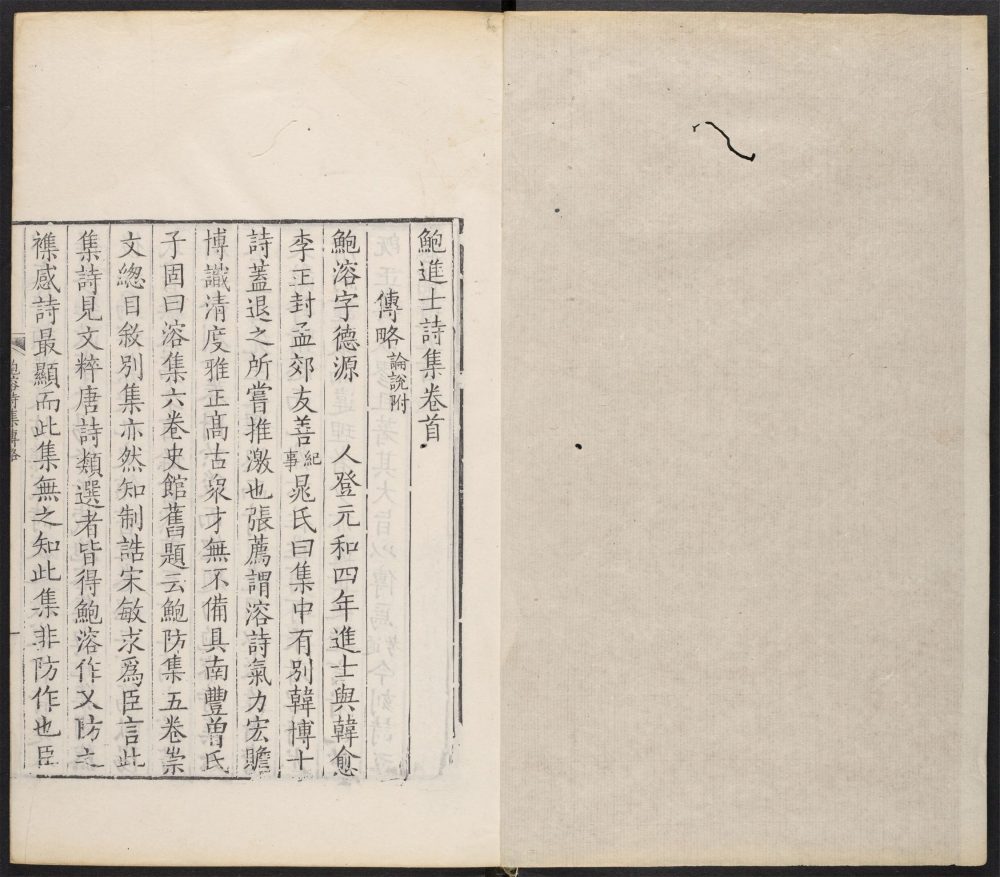 鮑進士詩集卷首
傳略論說附
鮑溶字德源　人登元和四年進士與韓愈
李正封孟郊友善紀事晁氏曰集中有別韓博士
詩蓋退之所嘗推激也張薦謂溶詩氣力宏贍
博識清度雅正高古衆才無不備具南豐曾氏
子固曰溶集六卷史館舊題云鮑防集五卷崇
文總目敘別集亦然知制誥宋敏求爲臣言此
集詩見文粹唐詩類選者皆得鮑溶作又防之
襍感詩最顯而此集無之知此集非防作也臣
鮑溶詩集傳略
一